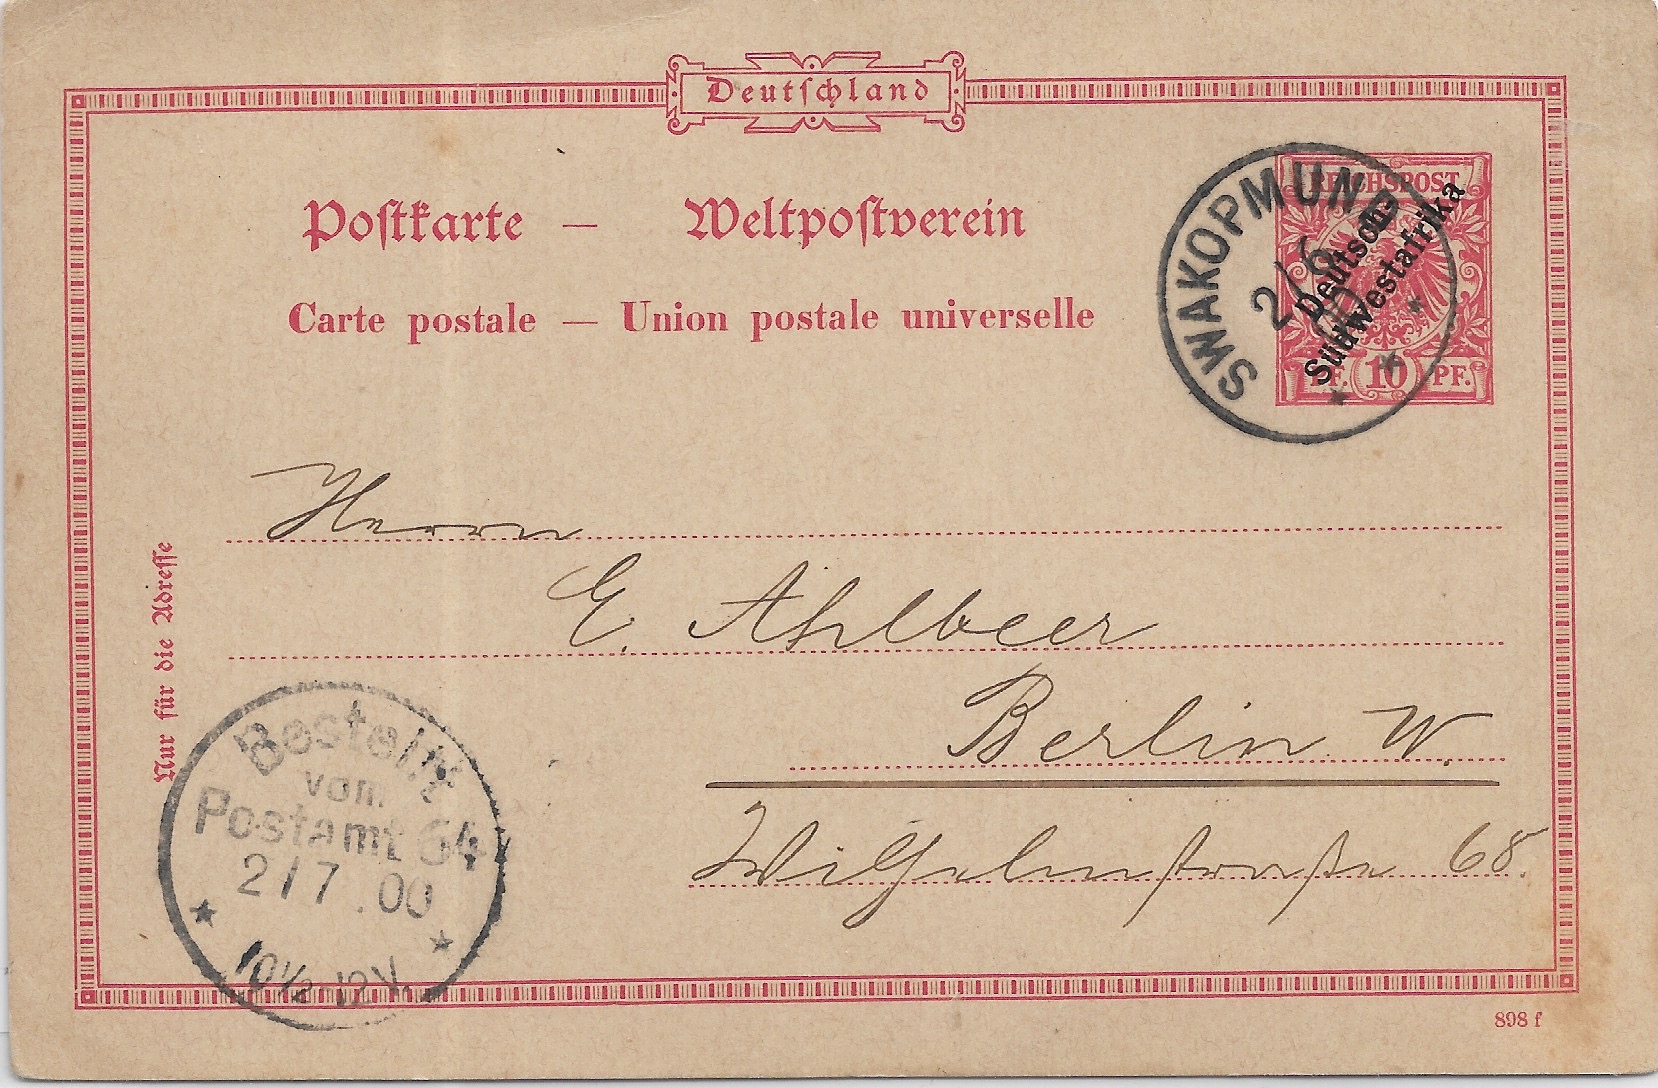 Deutschland
Postkarte — Weltpostverein
Carte postale — Union postale universelle
REICHSPOST
Deutsch-
Südwestafrika
PF. 10 PF.
SWAKOPMUND
2/6
Herrn
E. Ahlbeer
Berlin W.
Wilhelmstraße 68.
Nur für die Adresse
Bestellt
vom
Postamt 64
2/7.00
10½-12V.
898 f